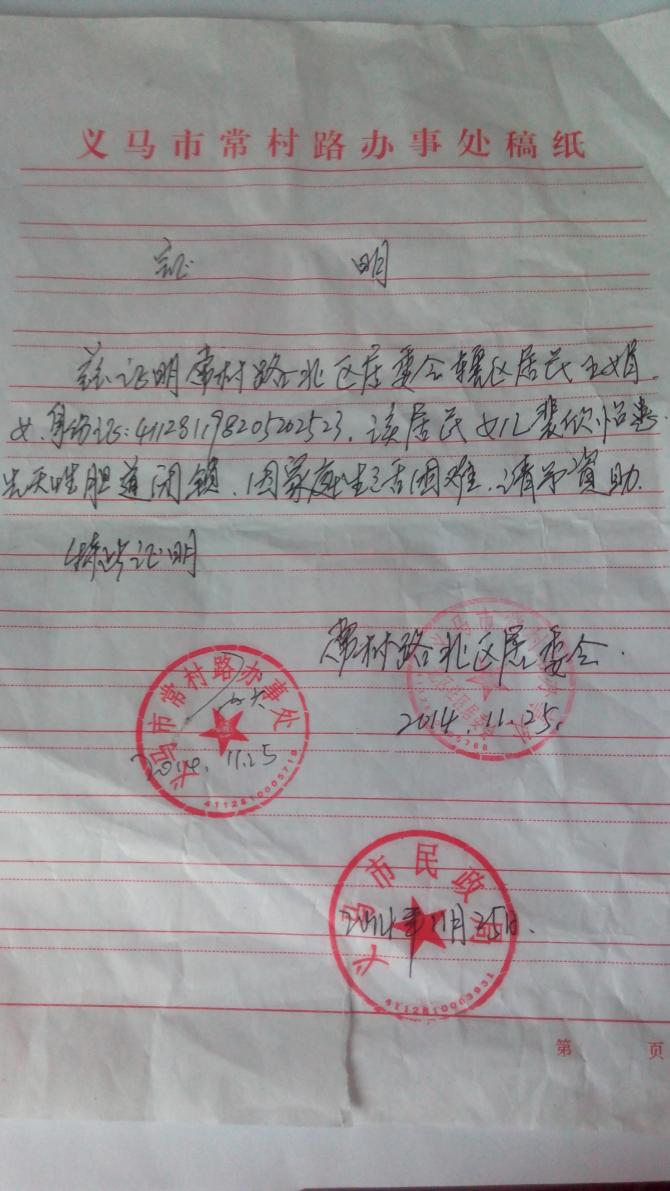 义马市常村路办事处稿纸
证 明
兹证明常村路北区居委会辖区居民王娟.
女.身份证:411281198205202523.该居民女儿裴欣怡患.
先天性胆道闭锁.因家庭生活困难.请予资助.
特此证明
常村路北区居委会.
2014.11.25.
义马市常村路办事处
2014.11.25
4112810005719
义马市民政局
2014年11月25日.
4112810003931
第 页